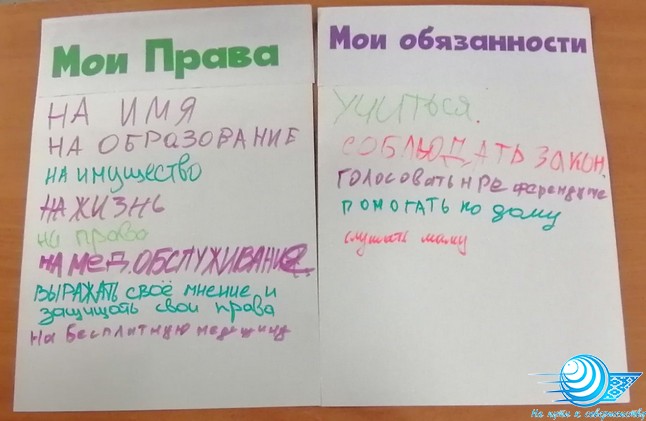 Мои Права
НА ИМЯ
НА ОБРАЗОВАНИЕ
НА ИМУЩЕСТВО
НА ЖИЗНЬ
на права
НА МЕД. ОБСЛУЖИВАНИЕ
ВЫРАЖАТЬ СВОЁ мнение и
защищать свои права
На бесплатную медицину
Мои обязанности
УЧИТЬСЯ.
СОБЛЮДАТЬ ЗАКОН.
ГОЛОСОВАТЬ Н РЕФЕРЕНДУМЕ
ПОМОГАТЬ по дому
слушать маму
На пути к совершенству